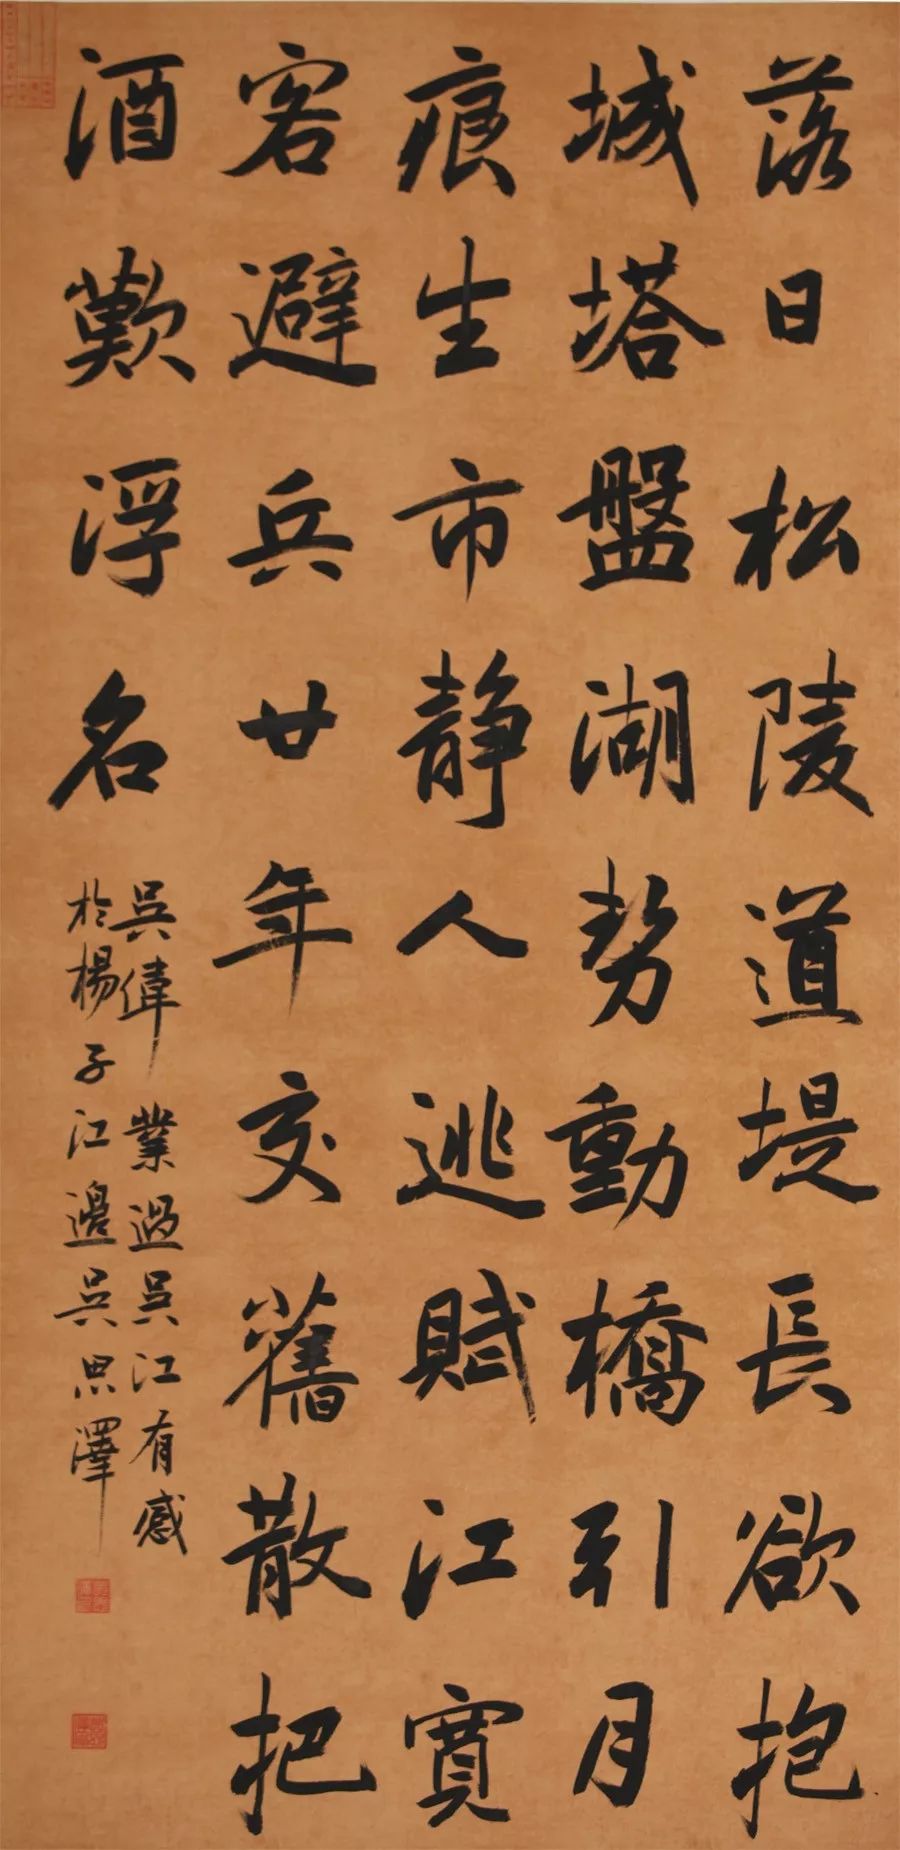 落日松陵道堤長欲抱
城塔盤湖勢動橋引月
痕生市靜人逃賦江寬
客避兵廿年交舊散把
酒歎浮名
吳偉業過吳江有感
於楊子江邊吳思澤